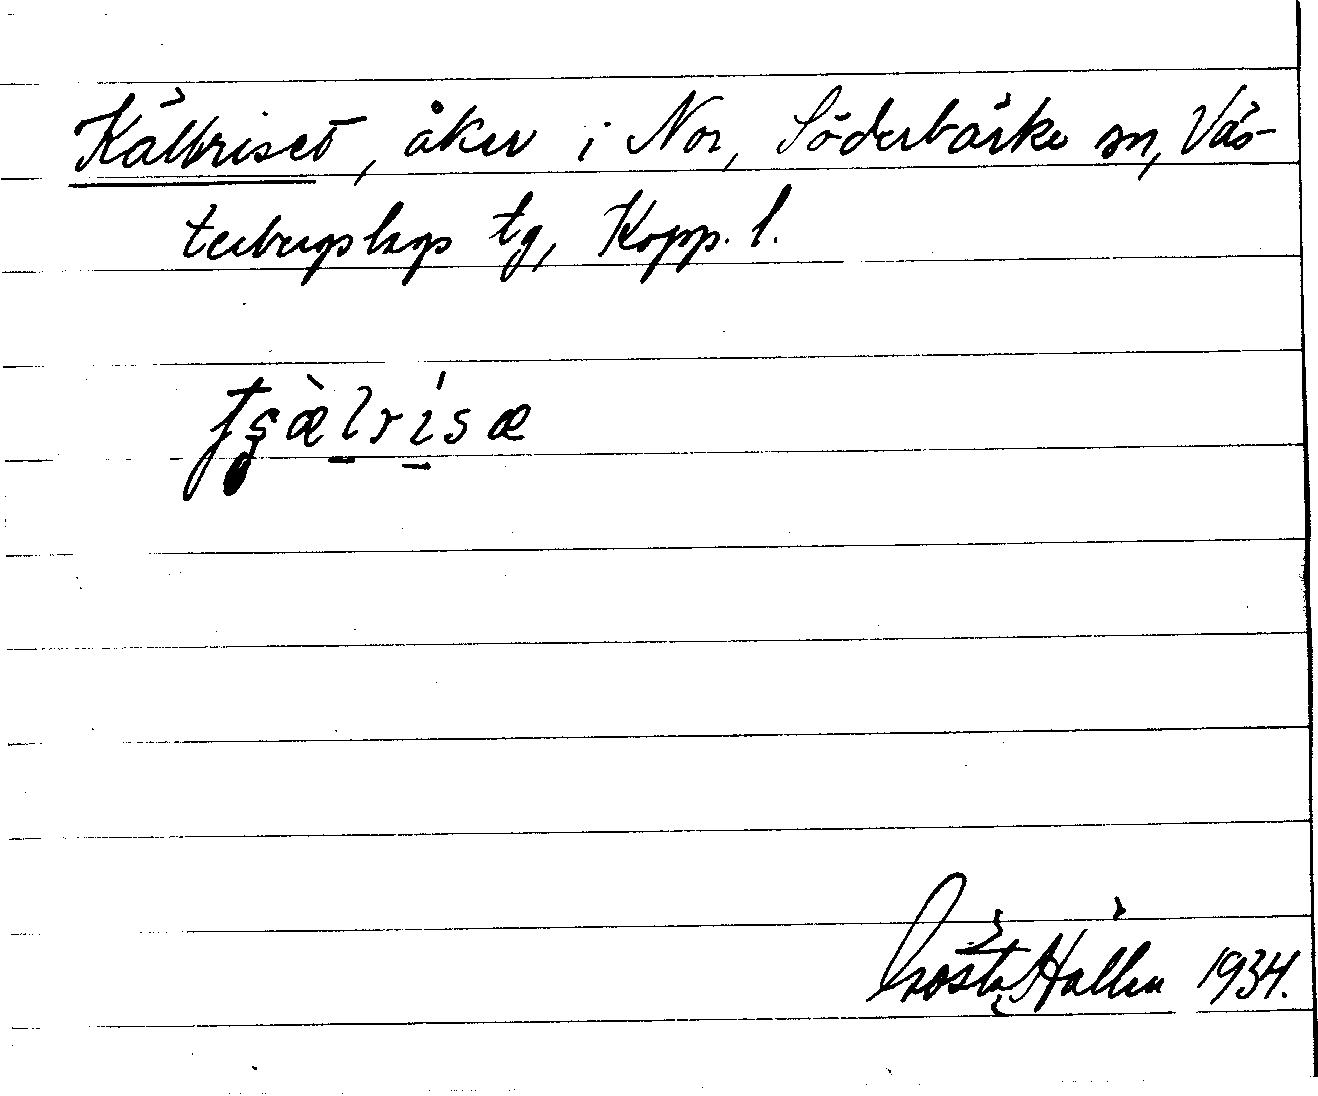 Källriset, åker i Nor, Söderbärke sn, Väs-
terbergslags tg, Kopp. l.
tʂæ̀lrísæ
Gösta Hallén 1934.